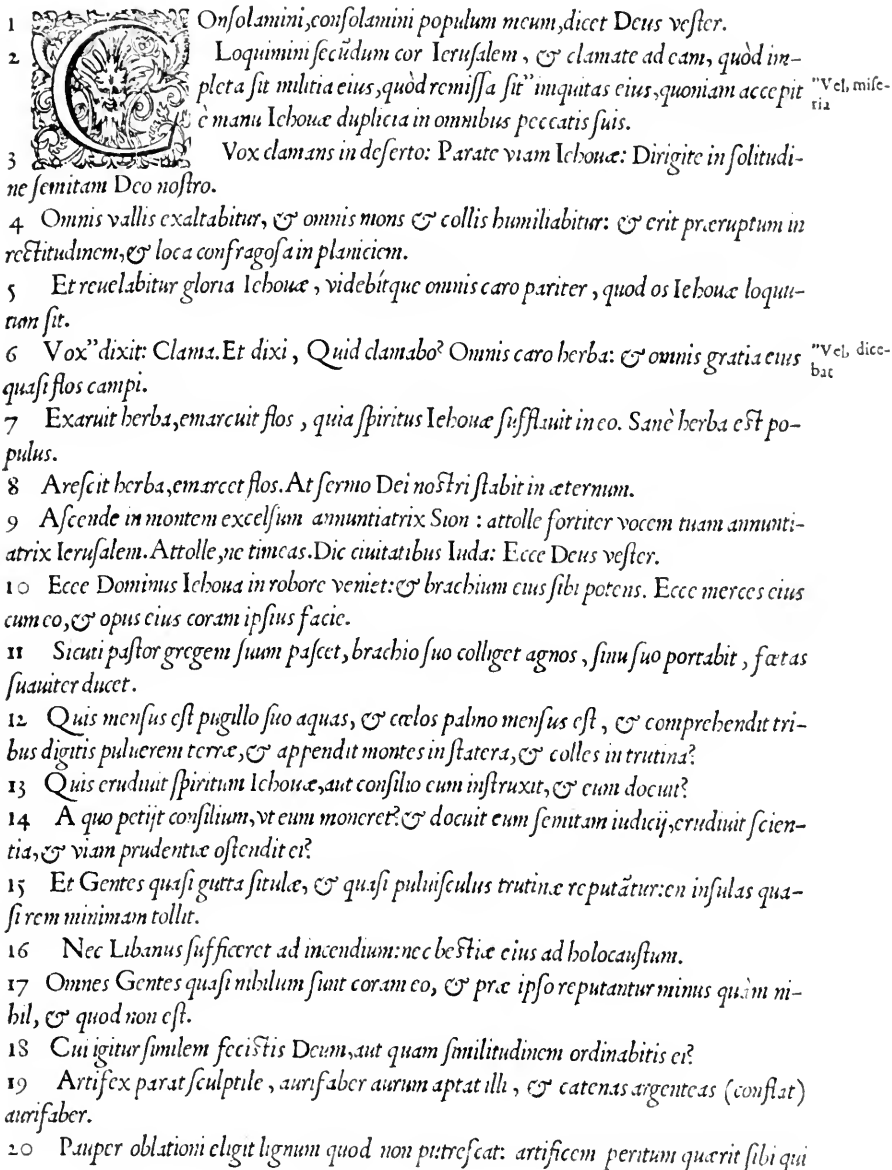 1 COnſolamini, conſolamini populum meum, dicet Deus veſter.
2 Loquimini ſecũdum cor Ieruſalem, & clamate ad eam, quòd im-
pleta ſit militia eius, quòd remiſſa ſit" iniquitas eius, quoniam accepit "Vel, miſe-
è manu Iehouæ duplicia in omnibus peccatis ſuis. ria
3 Vox clamans in deſerto: Parate viam Iehouæ: Dirigite in ſolitudi-
ne ſemitam Deo noſtro.
4 Omnis vallis exaltabitur, & omnis mons & collis humiliabitur: & erit præruptum in
rectitudinem, & loca confragoſa in planiciem.
5 Et reuelabitur gloria Iehouæ, videbítque omnis caro pariter, quod os Iehouæ loquu-
tum ſit.
6 Vox" dixit: Clama. Et dixi, Quid clamabo? Omnis caro herba: & omnis gratia eius "Vel, dice-
quaſi flos campi. bat
7 Exaruit herba, emarcuit flos, quia ſpiritus Iehouæ ſufflauit in eo. Sanè herba eſt po-
pulus.
8 Areſcit herba, emarcet flos. At ſermo Dei noſtri ſtabit in æternum.
9 Aſcende in montem excelſum annuntiatrix Sion: attolle fortiter vocem tuam annunti-
atrix Ieruſalem. Attolle, ne timeas. Dic ciuitatibus Iuda: Ecce Deus veſter.
10 Ecce Dominus Iehoua in robore veniet: & brachium eius ſibi potens. Ecce merces eius
cum eo, & opus eius coram ipſius facie.
11 Sicuti paſtor gregem ſuum paſcet, brachio ſuo colliget agnos, ſinu ſuo portabit, fœtas
ſuauiter ducet.
12 Quis menſus eſt pugillo ſuo aquas, & cœlos palmo menſus eſt, & comprehendit tri-
bus digitis puluerem terræ, & appendit montes in ſtatera, & colles in trutina?
13 Quis erudiuit ſpiritum Iehouæ, aut conſilio eum inſtruxit, & eum docuit?
14 A quo petijt conſilium, vt eum moneret? & docuit eum ſemitam iudicij, erudiuit ſcien-
tia, & viam prudentiæ oſtendit ei?
15 Et Gentes quaſi gutta ſitulæ, & quaſi puluiſculus trutinæ reputãtur: en inſulas qua-
ſi rem minimam tollit.
16 Nec Libanus ſufficeret ad incendium: nec beſtiæ eius ad holocauſtum.
17 Omnes Gentes quaſi nihilum ſunt coram eo, & præ ipſo reputantur minus quàm ni-
hil, & quod non eſt.
18 Cui igitur ſimilem feciſtis Deum, aut quam ſimilitudinem ordinabitis ei?
19 Artifex parat ſculptile, aurifaber aurum aptat illi, & catenas argenteas (conflat)
aurifaber.
20 Pauper oblationi eligit lignum quod non putreſcat: artificem peritum quærit ſibi qui